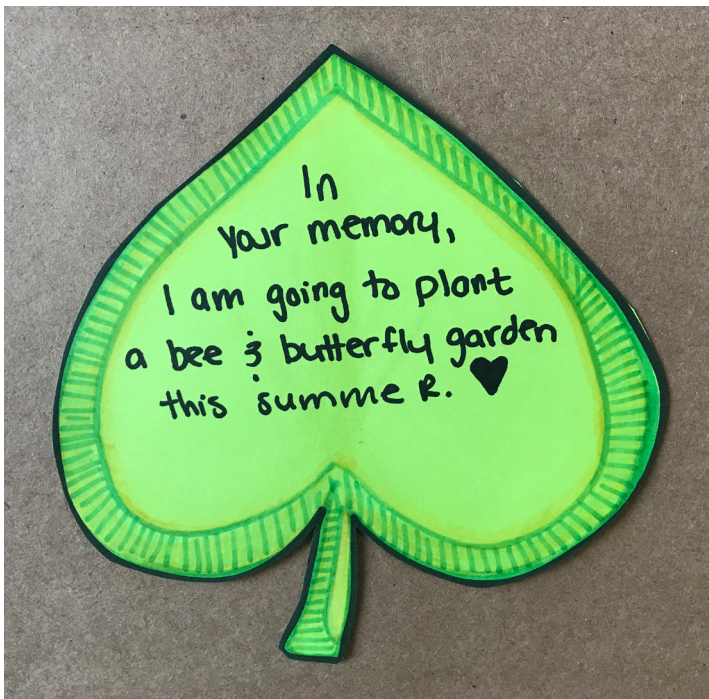 In
Your memory,
I am going to plant
a bee & butterfly garden
this summeR. ♥